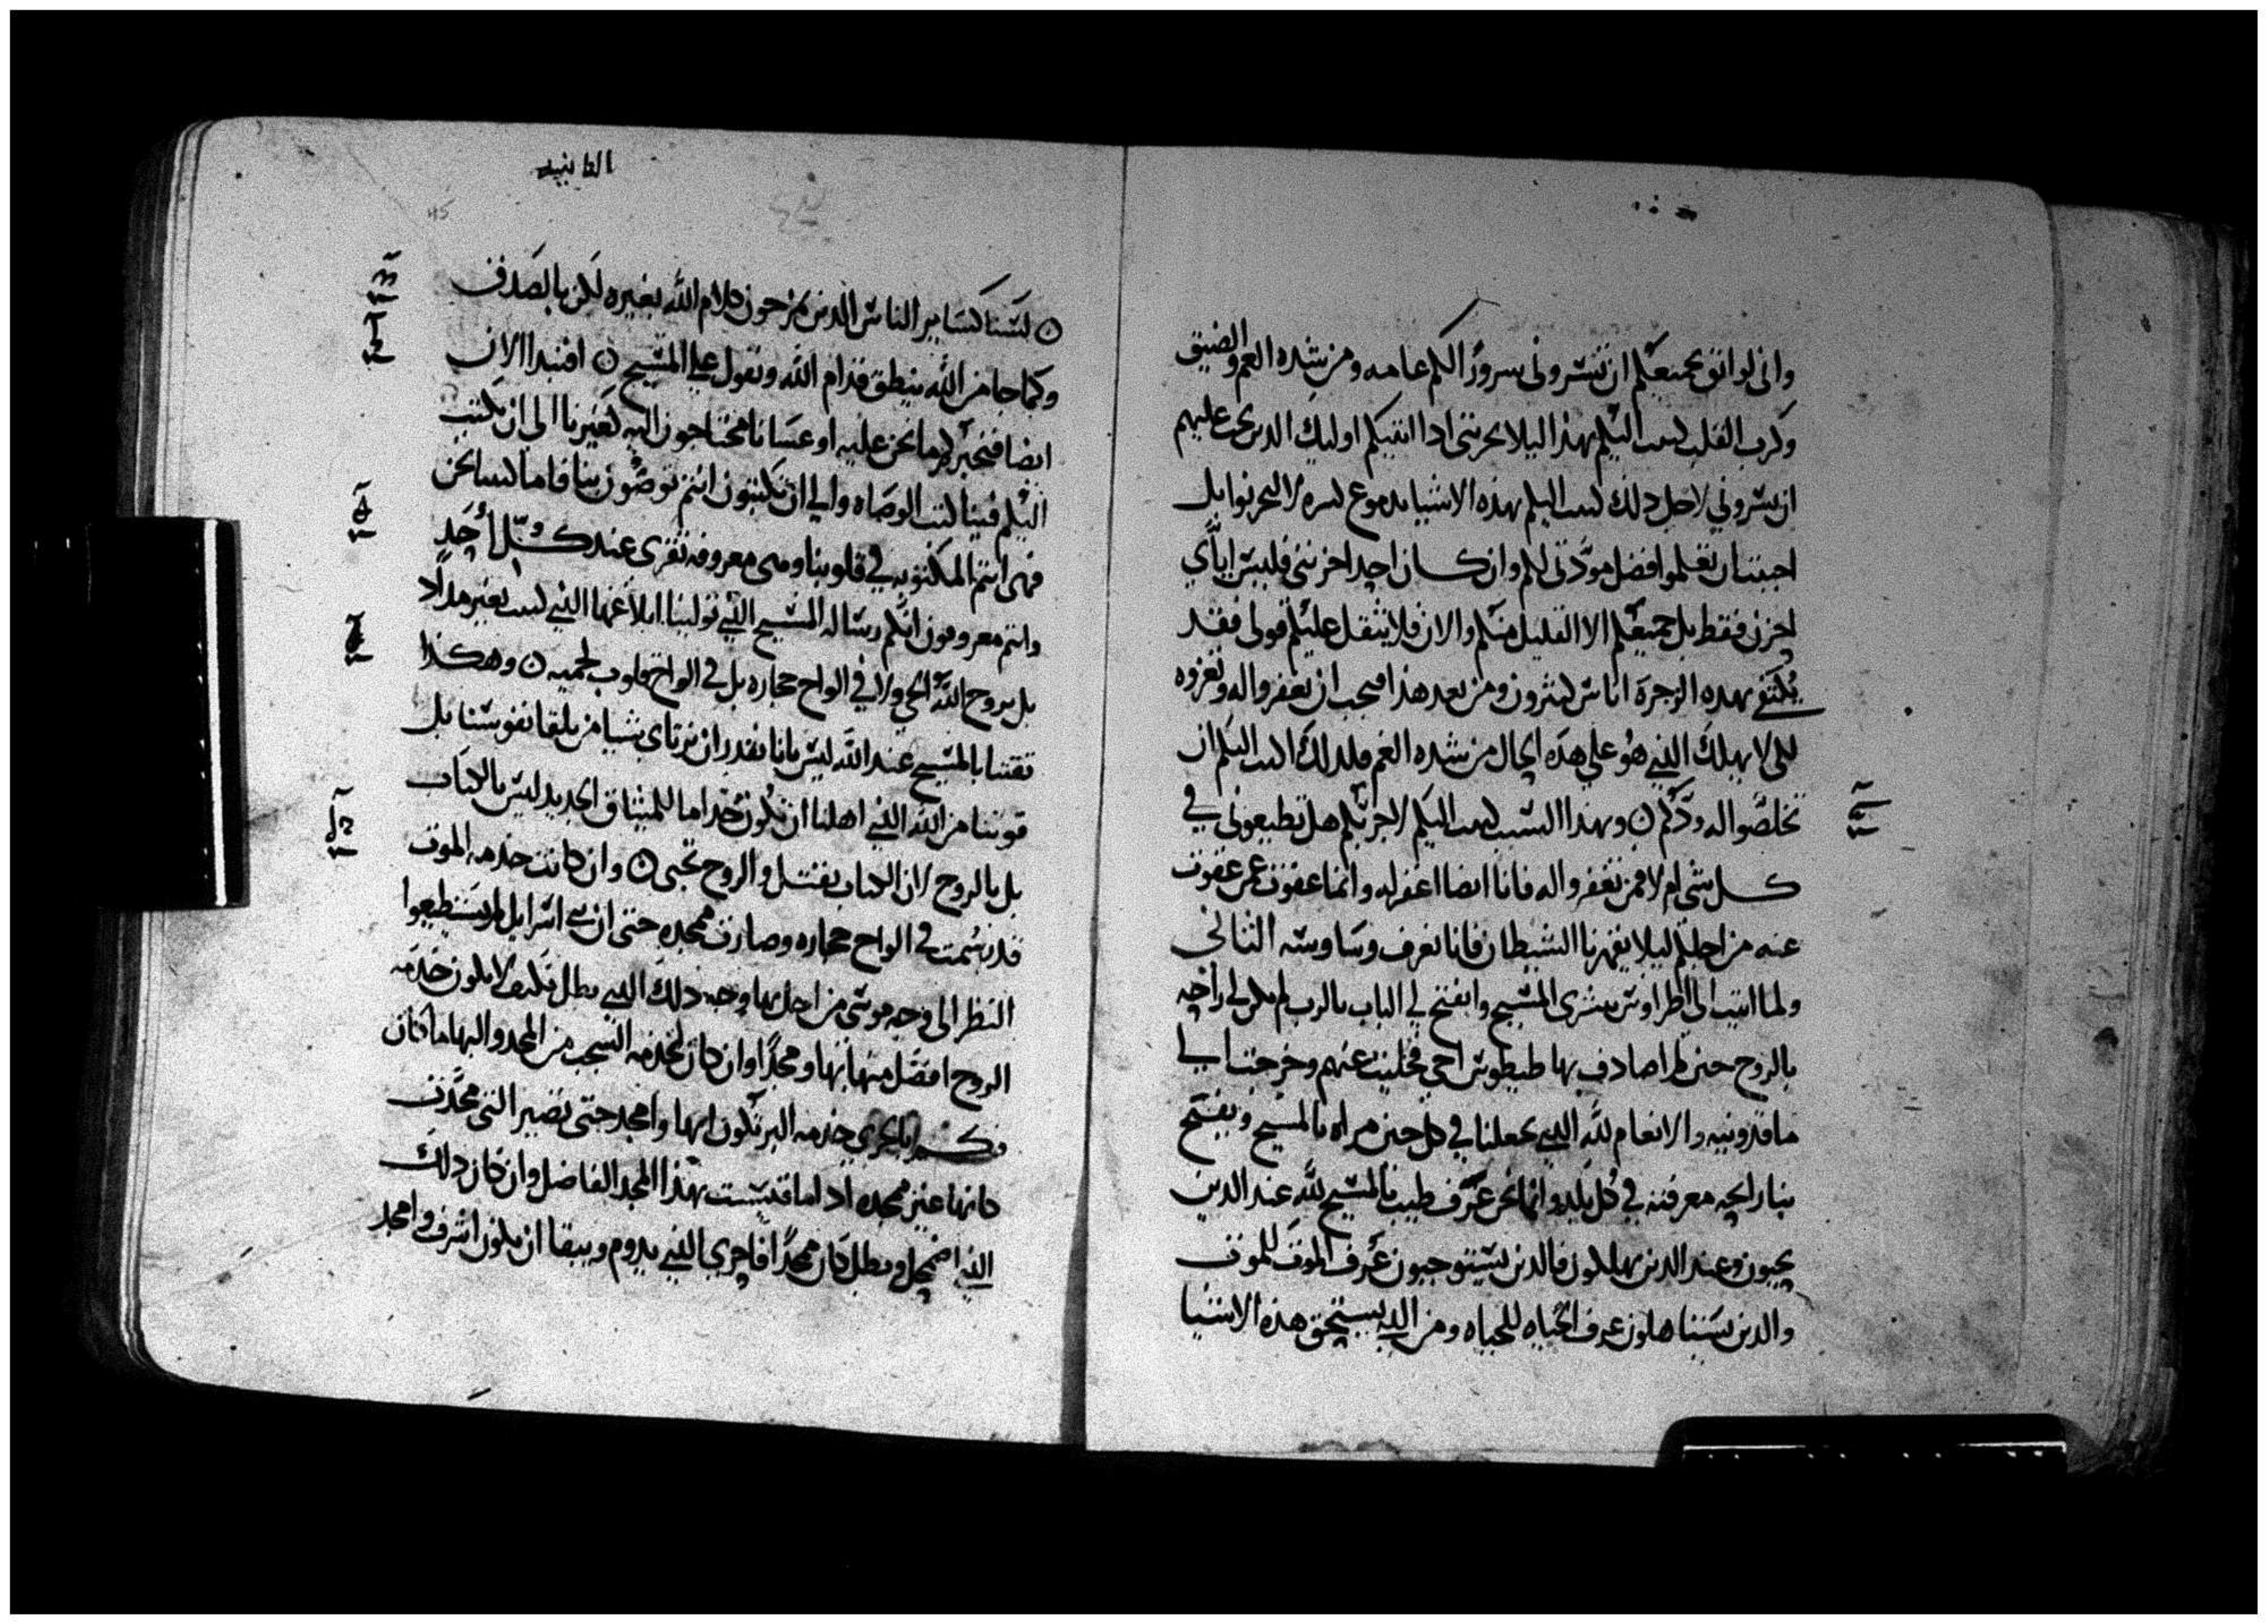 واني لواثق بجميعكم ان تنسروني سرور الكم عامه ومن شده الغم والضيق
وكرب القلب كتبت اليكم بهذا ليلا يحزنني اذا اتيتكم اوليك الذين يجب عليهم
ان يسروني لاجل ذلك كتبت اليكم بهذه الاشيا بدموع كثيره لا لتحزنوا بل
احببت ان تعلموا افضل مودتي لكم وان كان احد احزنني فليس اياي
احزن فقط بل جميعكم الا القليل منكم والان فلا يثقل عليكم قولي فقد
يكتفي بهده الزجرة اناس كثيرون ومن بعد هذا فيجب ان تغفروا له وتعزوه
لكي لا يهلك الذي هو علي هذه الحال من شده الغم فلذلك اطلب اليكم ان
تخلصوا له ودكم ن وبهذا السبب كتبت اليكم لاجربكم هل تطيعوني في
كل شي ام لا فمن تغفروا له فانا ايضا اغفر له وانما عفوت عمن عفوت
عنه من اجلكم ليلا يقهرنا الشيطان فانا نعرف وساوسه الثاني
ولما اتيت الي اطراوس ببشرى المسيح وانفتح لي الباب بالرب لم يكن لي راحه
بالروح حين لم اصادف بها طيطوس اخي فخليت عنهم وخرجت الي
ماقدونيه والانعام لله الذي يجعلنا في كل حين مراه بالمسيح ويفتح
بنا رايحه معرفته في كل بلد وانما نحن عرف طيب بالمسيح لله عند الذين
يحيون وعند الذين يهلكون فالذين يستوجبون عرف الموت للموت
والذين يستاهلون عرف الحياه للحياه ومن الذي يستحق هذه الاشيا
الثانيه
ن لسنا كساير الناس الذين يمزجون كلام الله بغيره لكن بالصدق
وكما جا من الله ينطق قدام الله ونقول علي المسيح ن افنبدا الان
ايضا فنخبركم ما نحن عليه او عسانا محتاجون اليه كغيرنا الي ان نكتب
اليكم فينا كتب الوصاه والي ان تكتبون انتم توصون بنا فاما كتابنا نحن
فهي انتم المكتوبه في قلوبنا وهي معروفه تقرى عند كل أحد
وانتم معروفون انكم رساله المسيح التي تولينا ابلاغها التي كتبت بغير مداد
بل بروح الله الحي ولا في الواح حجاره بل في الواح قلوب لحميه ن وهكذا
ثقتنا بالمسيح عند الله ليس بانا نقدر ان نرتاي شيا من تلقا نفوسنا بل
قوتنا من الله الذي اهلنا ان نكون خداما للميثاق الجديد ليس بالكتاب
بل بالروح لان الكتاب يقتل والروح تحيي ن وان كانت خدمه الموت
قد رسمت في الواح حجاره وصارت ممجده حتى ان بني اسرايل لم يستطيعوا
النظر الى وجه موسى من اجل بها وجهه ذلك الذي بطل فكيف لا يكون خدمه
الروح افضل منها بها ومجدا وان كان لخدمه الشجب من المجد والبها ما كان
فكم بالحري خدمه البر تكون ابها وامجد حتى تصير التي مجدت
كانها غير ممجده اذا ما قيست بهذا المجد الفاضل وان كان ذلك
الذي اضمحل وبطل كان ممجدا فاحري الذي يدوم ويبقا ان يكون اشرف وامجد